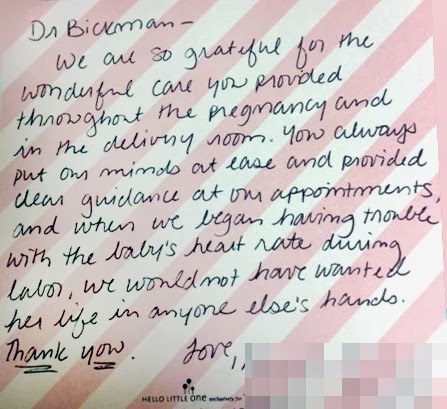 Dr Bickman—
We are so grateful for the
wonderful care you provided
throughout the pregnancy and
in the delivery room. You always
put our minds at ease and provided
clear guidance at our appointments,
and when we began having trouble
with the baby's heart rate during
labor, we would not have wanted
her life in anyone else's hands.
Thank you. Love,
HELLO LITTLE one exclusively for